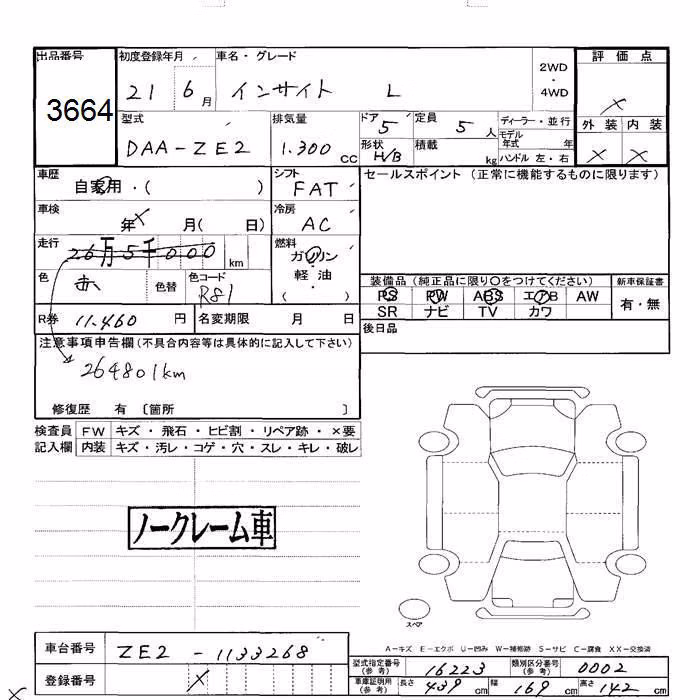 出品番号
3664
初度登録年月
21 6月
車名・グレード
インサイト L
2WD
・
4WD
評価点
×
外装 内装
× ×
型式
DAA-ZE2
排気量
1.300 cc
ドア 5
形状 H/B
定員 5 人
積載 kg
ディーラー・並行
モデル年式 年
ハンドル 左・右
車歴
自家用・( )
シフト
FAT
セールスポイント(正常に機能するものに限ります)
車検
×年 月( 日)
冷房
AC
走行
26万5千000 km
燃料
ガソリン
軽・油
( )
色
赤
色替
色コード
R81
装備品(純正品に限り○をつけてください)
新車保証書
PS PW ABS エアB AW
有・無
SR ナビ TV カワ
R券 11.460 円
名変期限 月 日
後日品
注意事項申告欄(不具合内容等は具体的に記入して下さい)
264801km
修復歴 有〔箇所 〕
検査員 FW キズ・飛石・ヒビ割・リペア跡・×要
記入欄 内装 キズ・汚レ・コゲ・穴・スレ・キレ・破レ
ノークレーム車
スペア
A-キズ E-エクボ U-凹み W-補修跡 S-サビ C-腐食 XX-交換済
車台番号
ZE2-1133268
登録番号
×
型式指定番号(参考)
16223
類別区分番号(参考)
0002
車庫証明用(参考)
長さ 439 cm 幅 169 cm 高さ 142 cm
×